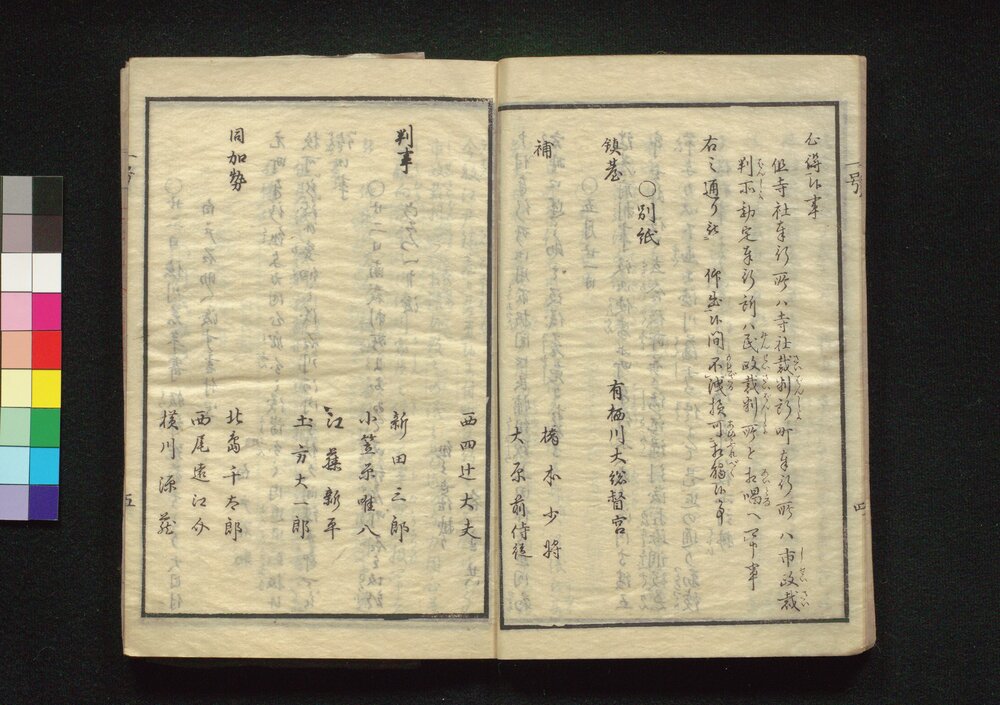 心得候事
但寺社奉行所ハ寺社裁判所町奉行所ハ市政裁
判所勘定奉行所ハ民政裁判所と相唱へ可申事
右之通り被 仰出候間不洩様可相触候事
〇別紙
鎮台 有栖川大総督宮
補 橋本少将
大原前侍従
西四辻大夫
判事 新田三郎
小笠原唯八
江藤新平
土方大一郎
同加勢 北島千太郎
西尾遠江介
横川源蔵
一号
四
五